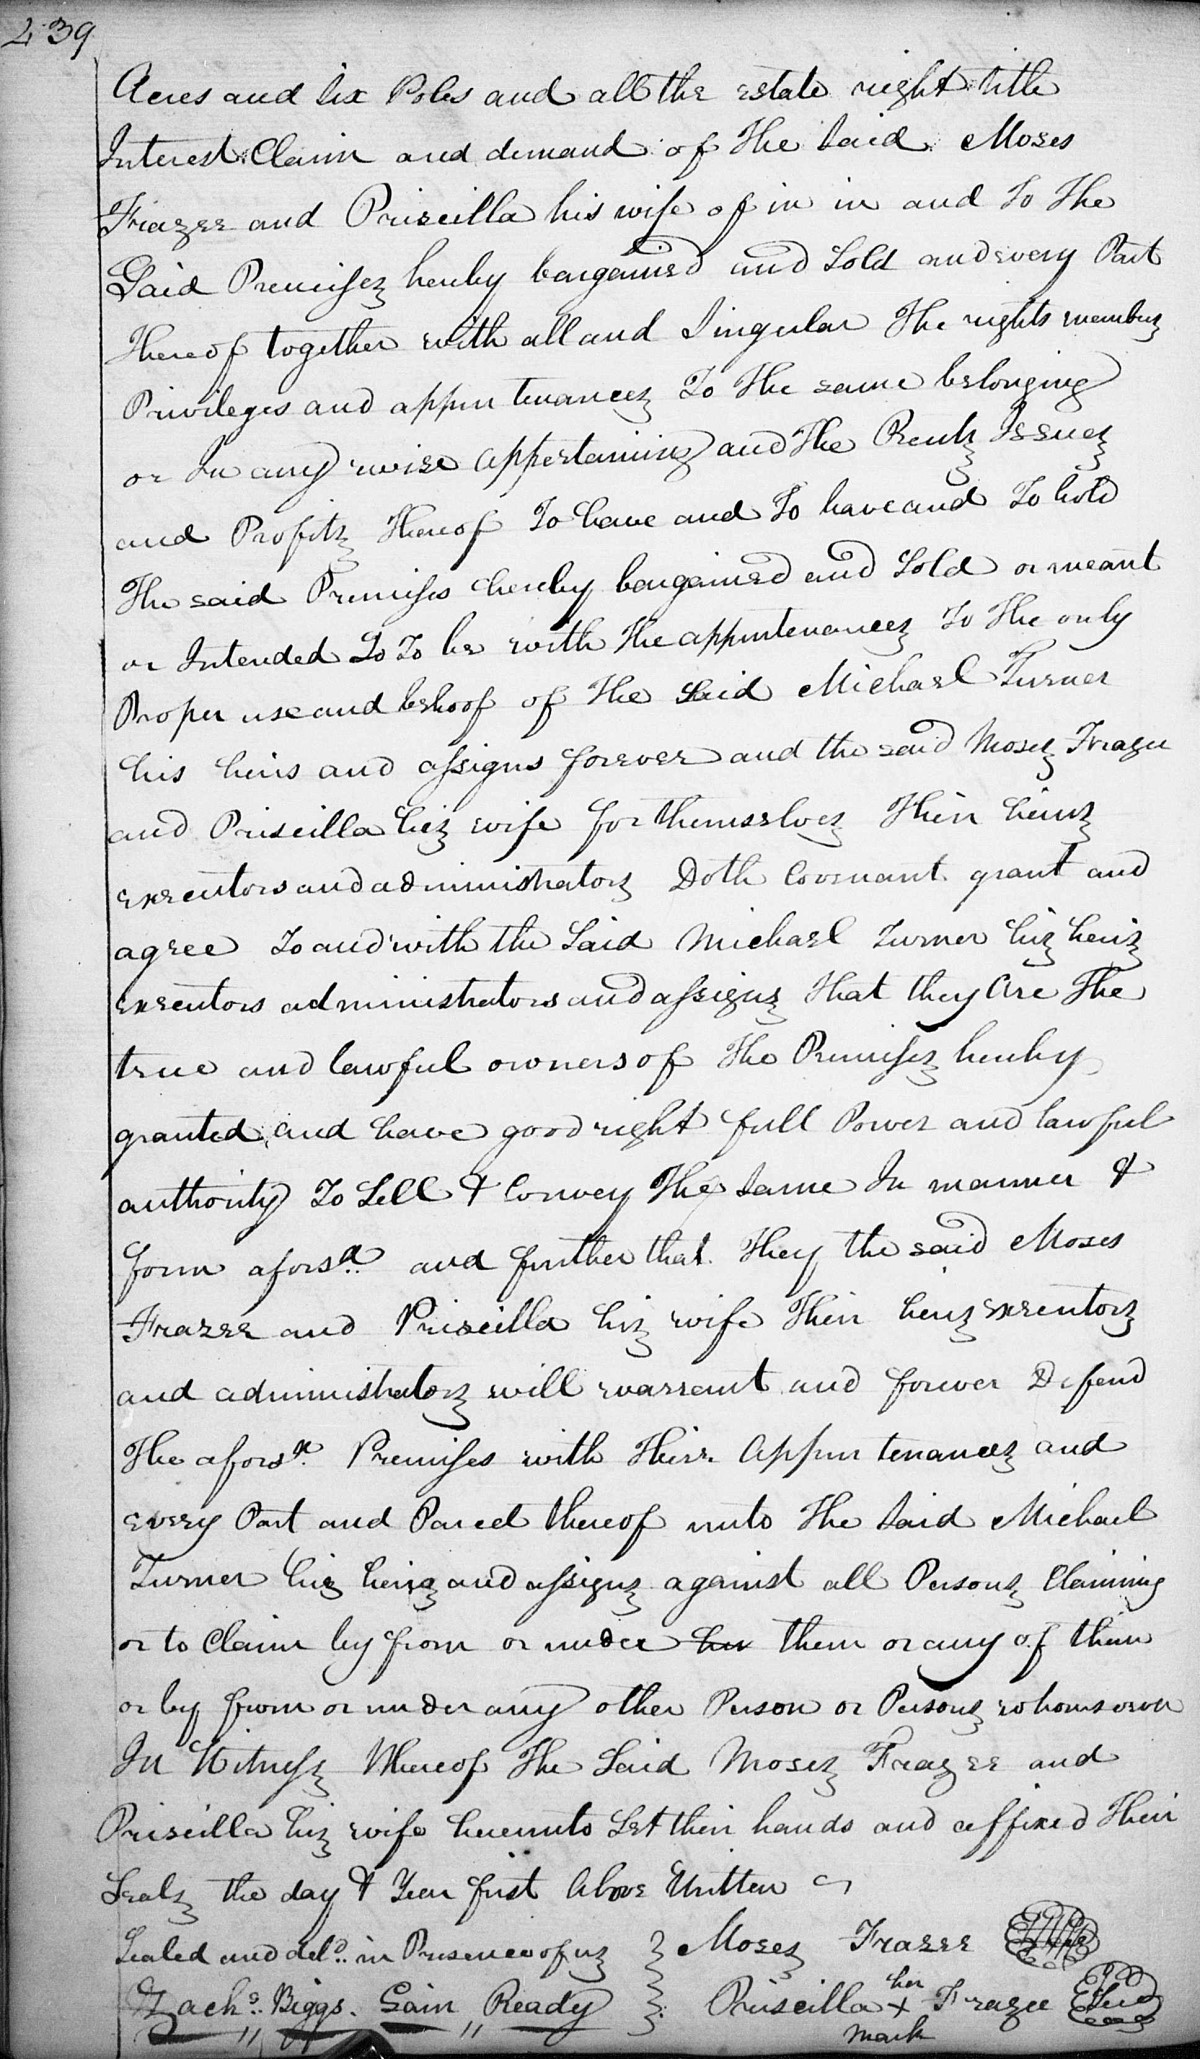 439
Acres and Six Poles and all the estate right title
Interest Claim and demand of The Said Moses
Frazee and Priscilla his wife of in in and To The
Said Premises hereby bargained and Sold and every Part
Thereof together with all and Singular The rights members
Privileges and appurtenances To The same belonging
or In any wise appertaining and The Rents Issues
and Profits Thereof To have and To have and To hold
The said Premises hereby bargained and Sold or meant
or Intended So To be with The appurtenances To The only
Proper use and behoof of The Said Michael Turner
his heirs and assigns forever and the said Moses Frazee
and Priscilla his wife for themselves Their heirs
executors and administrators Doth Covenant grant and
agree To and with the Said Michael Turner his heirs
executors administrators and assigns That they Are The
true and lawful owners of The Premises hereby
granted and have good right full Power and lawful
authority To Sell & Convey The Same In manner &
form aforsd and further that They the said Moses
Frazee and Priscilla his wife Their heirs executors
and administrators will warrant and forever Defend
The aforsd Premises with Their Appurtenances and
every Part and Parcel thereof unto The Said Michael
Turner his heirs and assigns against all Persons Claiming
or to Claim by from or under her them or any of them
or by from or under any other Person or Persons whomsoever
In Witness Whereof The Said Moses Frazee and
Priscilla his wife hereunto Set their hands and affixed Their
Seals the day & Year first Above Written
Sealed and deld in Presence of us Moses Frazee Seal
Zachs Biggs. Gain Ready Priscilla her x Frazee Seal
mark